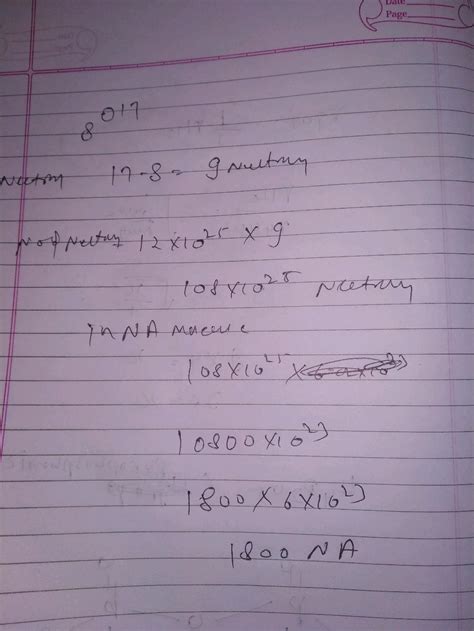 Date
Page
8 O17
Neutron 17-8= 9 Neutron
No of Neutron 12×10^25 × 9
108×10^25 Neutron
in NA
108×10^25 ×
10800×10^23
1800×6×10^23
1800 NA